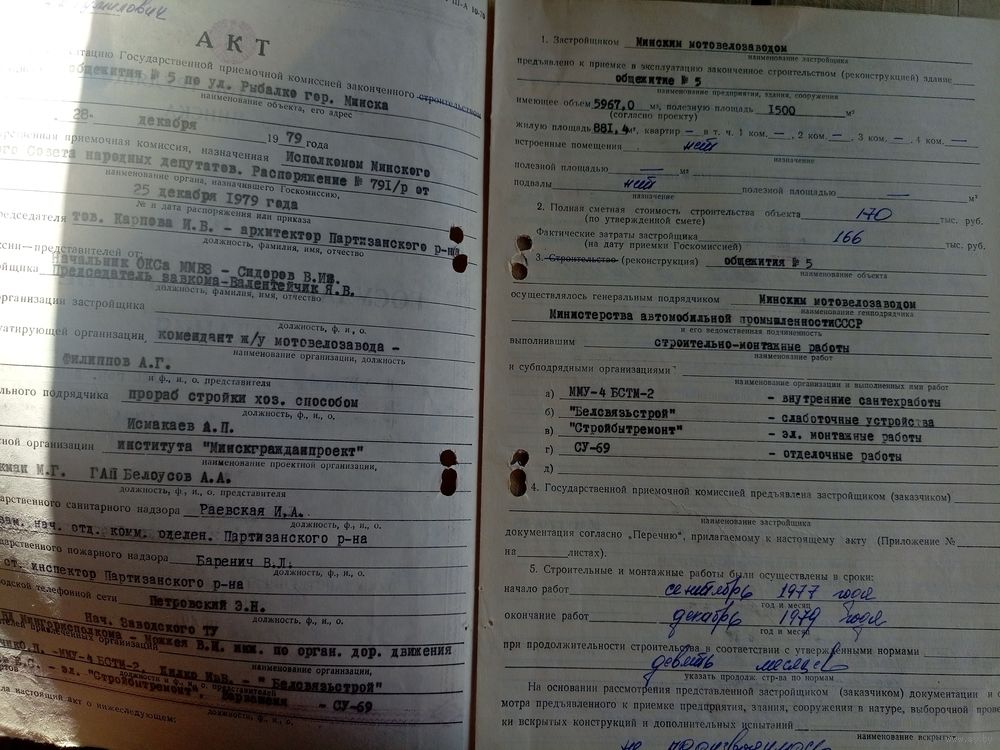 АКТ
Государственной приемочной комиссией законченного строительством
общежития № 5 по ул. Рыбалко гор. Минска
наименование объекта, его адрес
28 декабря 1979 года
приемочная комиссия, назначенная Исполкомом Минского
Совета народных депутатов. Распоряжение № 791/р от
наименование органа, назначившего Госкомиссию,
25 декабря 1979 года
№ и дата распоряжения или приказа
тов. Карпова И.В. - архитектор Партизанского р-на
должность, фамилия, имя, отчество
представителей от
Начальник ОКСа ММВЗ - Сидоров В.Ив.
Председатель завкома-Валентейчик Я.В.
должность, фамилия, имя, отчество
организации застройщика
должность, ф. и., о.
организации, комендант ж/у мотовелозавода -
наименование организации, должность
Филиппов А.Г.
и ф., и., о. представителя
подрядчика прораб стройки хоз. способом
должность, ф., и., о.
Исмакаев А.П.
организации института "Минскгражданпроект"
наименование проектной организации,
М.Г. ГАП Белоусов А.А.
должность, ф., и., о. представителя
санитарного надзора Раевская И.А.
должность, ф., и., о.
зам. нач. отд. комм. оделен. Партизанского р-на
пожарного надзора Баренич В.Л.
должность, ф., и., о.
ст. инспектор Партизанского р-на
телефонной сети Петровский Э.Н.
должность, ф., и., о.
Нач. Заводского ТУ
В.И. инж. по орган. дор. движения
организаций
-ММУ-4 БСТМ-2. - "Белсвязьстрой"
наименование организации,
- эл. "Стройбытремонт", - СУ-69
настоящий акт о нижеследующем:
должность, ф., и., о.
1. Застройщиком Минским мотовелозаводом
наименование застройщика
предъявлено к приемке в эксплуатацию законченное строительством (реконструкцией) здание
общежитие № 5
наименование предприятия, здания, сооружения
имеющее объем 5967,0 м³, полезную площадь 1500 м²
(согласно проекту)
жилую площадь 881,4 м², квартир — в т. ч. 1 ком. —, 2 ком. —, 3 ком. —, 4 ком. —
встроенные помещения нет
назначение
полезной площадью — м²
подвалы нет полезной площадью — м²
назначение
2. Полная сметная стоимость строительства объекта 170 тыс. руб.
(по утвержденной смете)
Фактические затраты застройщика 166 тыс. руб.
(на дату приемки Госкомиссией)
3. Строительство (реконструкция) общежития № 5
наименование объекта
осуществлялось генеральным подрядчиком Минским мотовелозаводом
наименование генподрядчика
Министерства автомобильной промышленностиСССР
и его ведомственная подчиненность
выполнившим строительно-монтажные работы
наименование работ
и субподрядными организациями
наименование организации и выполненных ими работ
а) ММУ-4 БСТМ-2 - внутренние сантехработы
б) "Белсвязьстрой" - слаботочные устройства
в) "Стройбытремонт" - эл. монтажные работы
г) СУ-69 - отделочные работы
д)
4. Государственной приемочной комиссией предъявлена застройщиком (заказчиком)
наименование застройщика
документация согласно „Перечню“, прилагаемому к настоящему акту (Приложение №
на листах).
5. Строительные и монтажные работы были осуществлены в сроки:
начало работ сентябрь 1977 года
год и месяц
окончание работ декабрь 1979 года
год и месяц
при продолжительности строительства в соответствии с утвержденными нормами
девять месяцев
указать продолж. стр-ва по нормам
На основании рассмотрения представленной застройщиком (заказчиком) документации и
мотра предъявленного к приемке предприятия, здания, сооружения в натуре, выборочной
ки вскрытых конструкций и дополнительных испытаний
наименование
не производилось